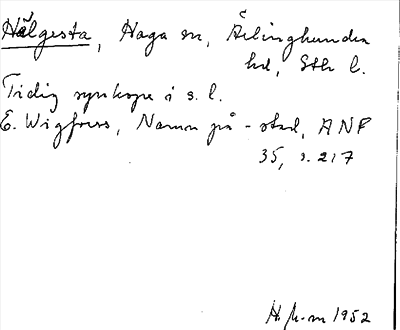 Hälgesta, Haga sn, Ärlinghundra
hd, Sthlm l.
Tidig synkope i s. l.
E. Wigforss, Namn på -stad, ANF
35, s. 217
1952